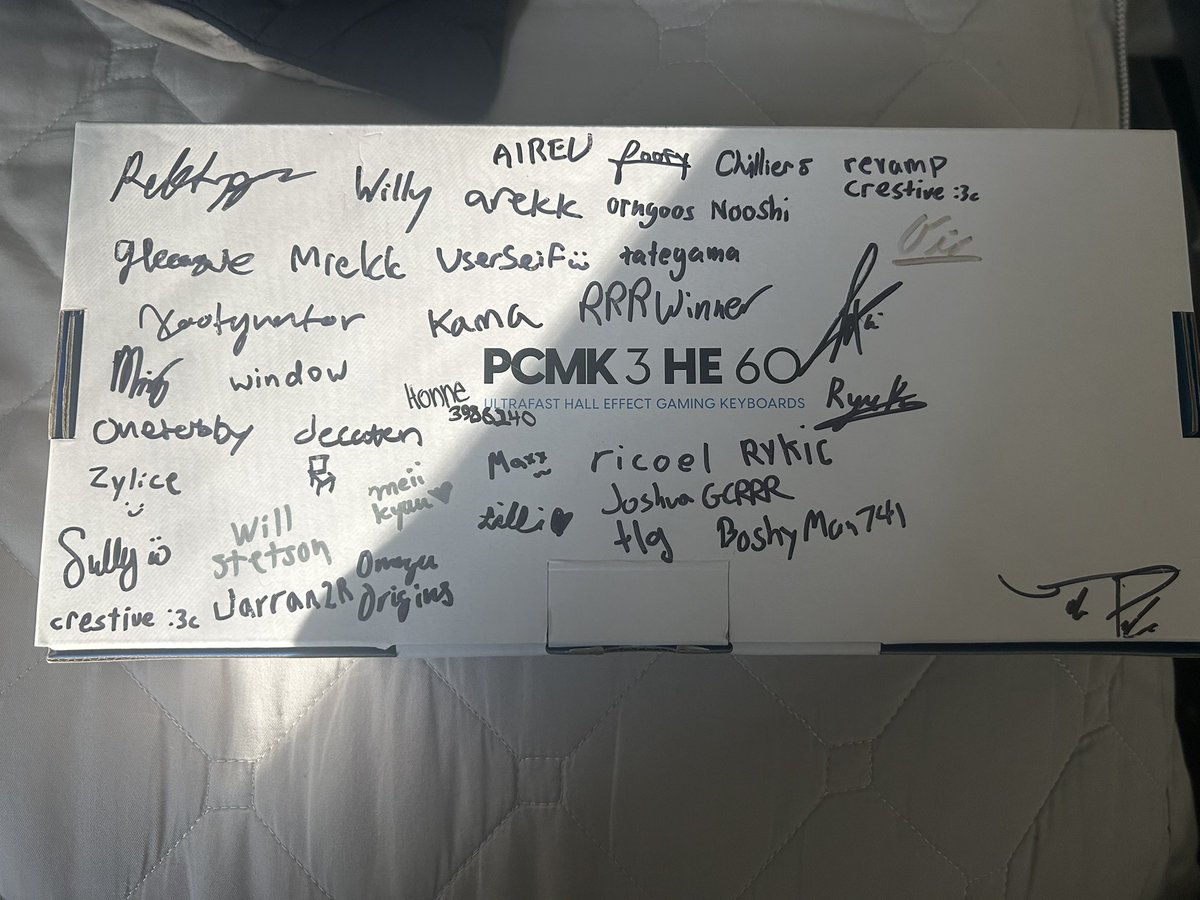 AIREU Chilliers revamp
crestive :3c
Willy arekk orngoos Nooshi
Vic
Mrekk UserSeif tategama
Kama RRRWinner
window
PCMK 3 HE 60
ULTRAFAST HALL EFFECT GAMING KEYBOARDS
Honne
3986240
Ryuk
decaten
Zylice
Maxx ricoel RYKIC
meii
kyuu
tilli Joshua GCRRR
Will
stetson
tlg BoshyMan741
Sully
Omega
Origins
crestive :3c JarranZR